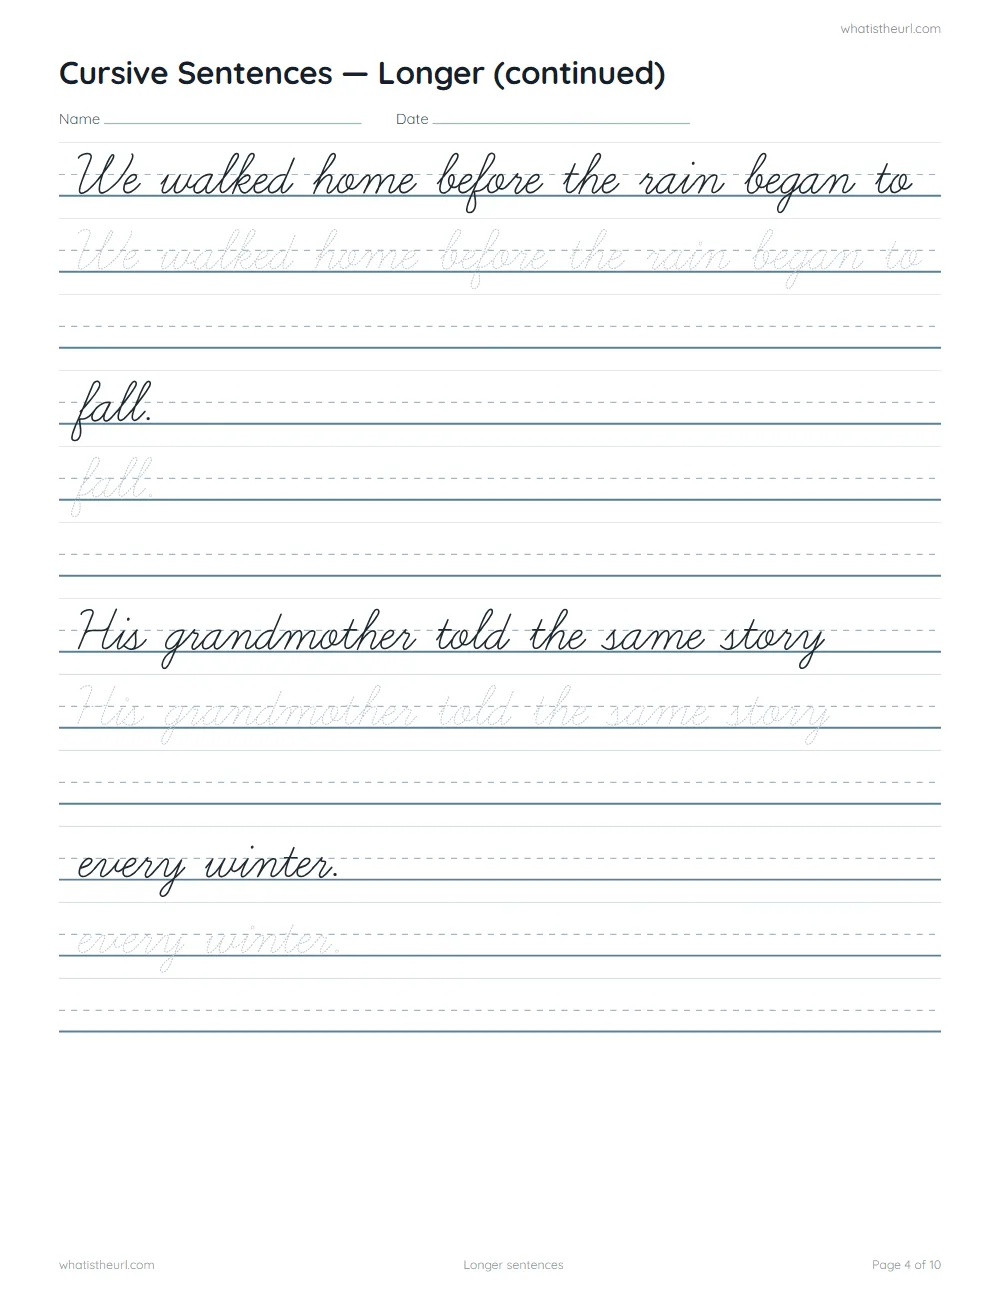 whatistheurl.com
Cursive Sentences — Longer (continued)
Name Date
We walked home before the rain began to
We walked home before the rain began to
fall.
fall.
His grandmother told the same story
His grandmother told the same story
every winter.
every winter.
whatistheurl.com Longer sentences Page 4 of 10